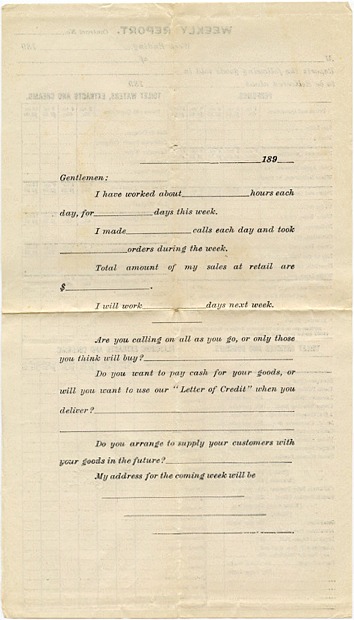 WEEKLY REPORT.
TOILET WATERS, EXTRACTS AND CREAMS.
189
Gentlemen:
I have worked about hours each
day, for days this week.
I made calls each day and took
orders during the week.
Total amount of my sales at retail are
$ .
I will work days next week.
Are you calling on all as you go, or only those
you think will buy?
Do you want to pay cash for your goods, or
will you want to use our "Letter of Credit" when you
deliver?
Do you arrange to supply your customers with
your goods in the future?
My address for the coming week will be